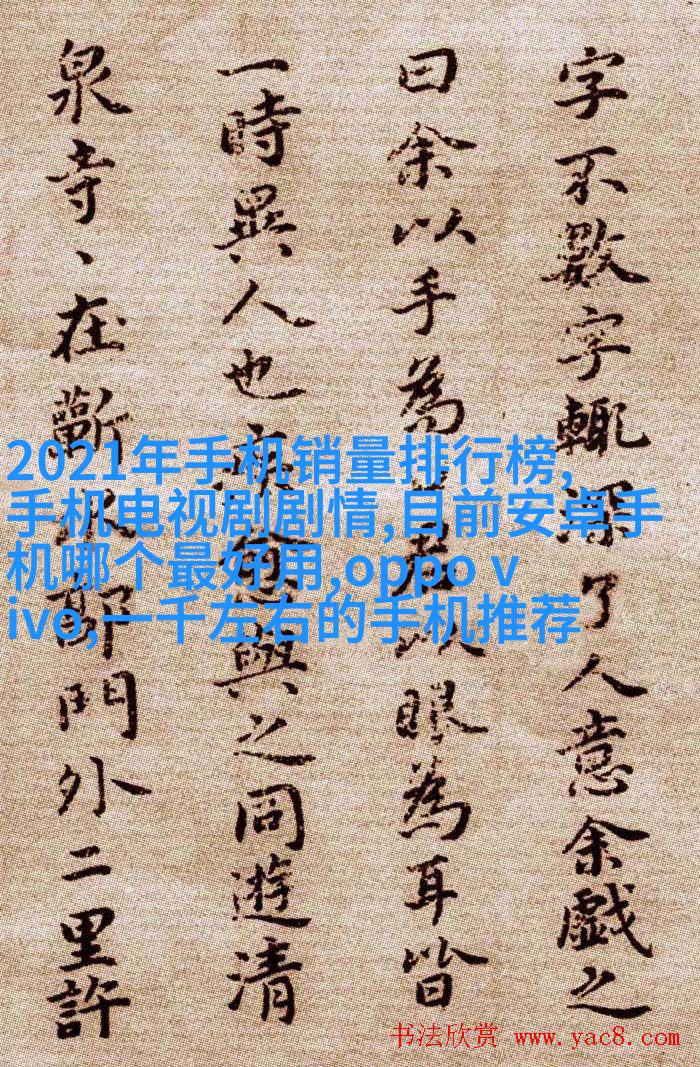 字不數字輒深了人意余戲之
曰余以手為以眼為耳皆
一時異人也與之同遊清
泉寺、在蘄郭門外二里許
2021年手机销量排行榜,
手机电视剧剧情,目前安卓手
机哪个最好用,oppo v
ivo,一千左右的手机推荐
书法欣赏 www.yac8.com